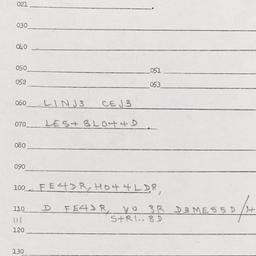 021
030
040
050 051
052 053
060 LINJ3 CEJ3
070 LES+ BLO++D.
080
090
100 FE4DR, HO++LDR,
110 D FE4DR, VO 3R D3MES5D/4
111 S+RI..8D
120
130